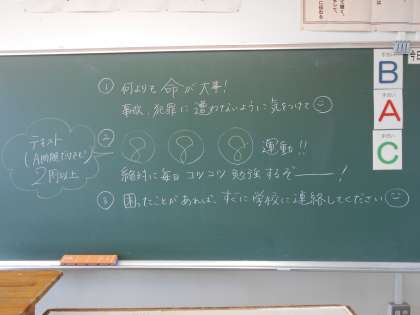 ① 何よりも 命 が 大事!
事故、犯罪に 遭わないように 気をつけて
テキスト
2周以上
② 運動!!
絶対に毎日 コツコツ 勉強するぞ――!
③ 困ったことがあれば、すぐに学校に連絡してください
B
A
C